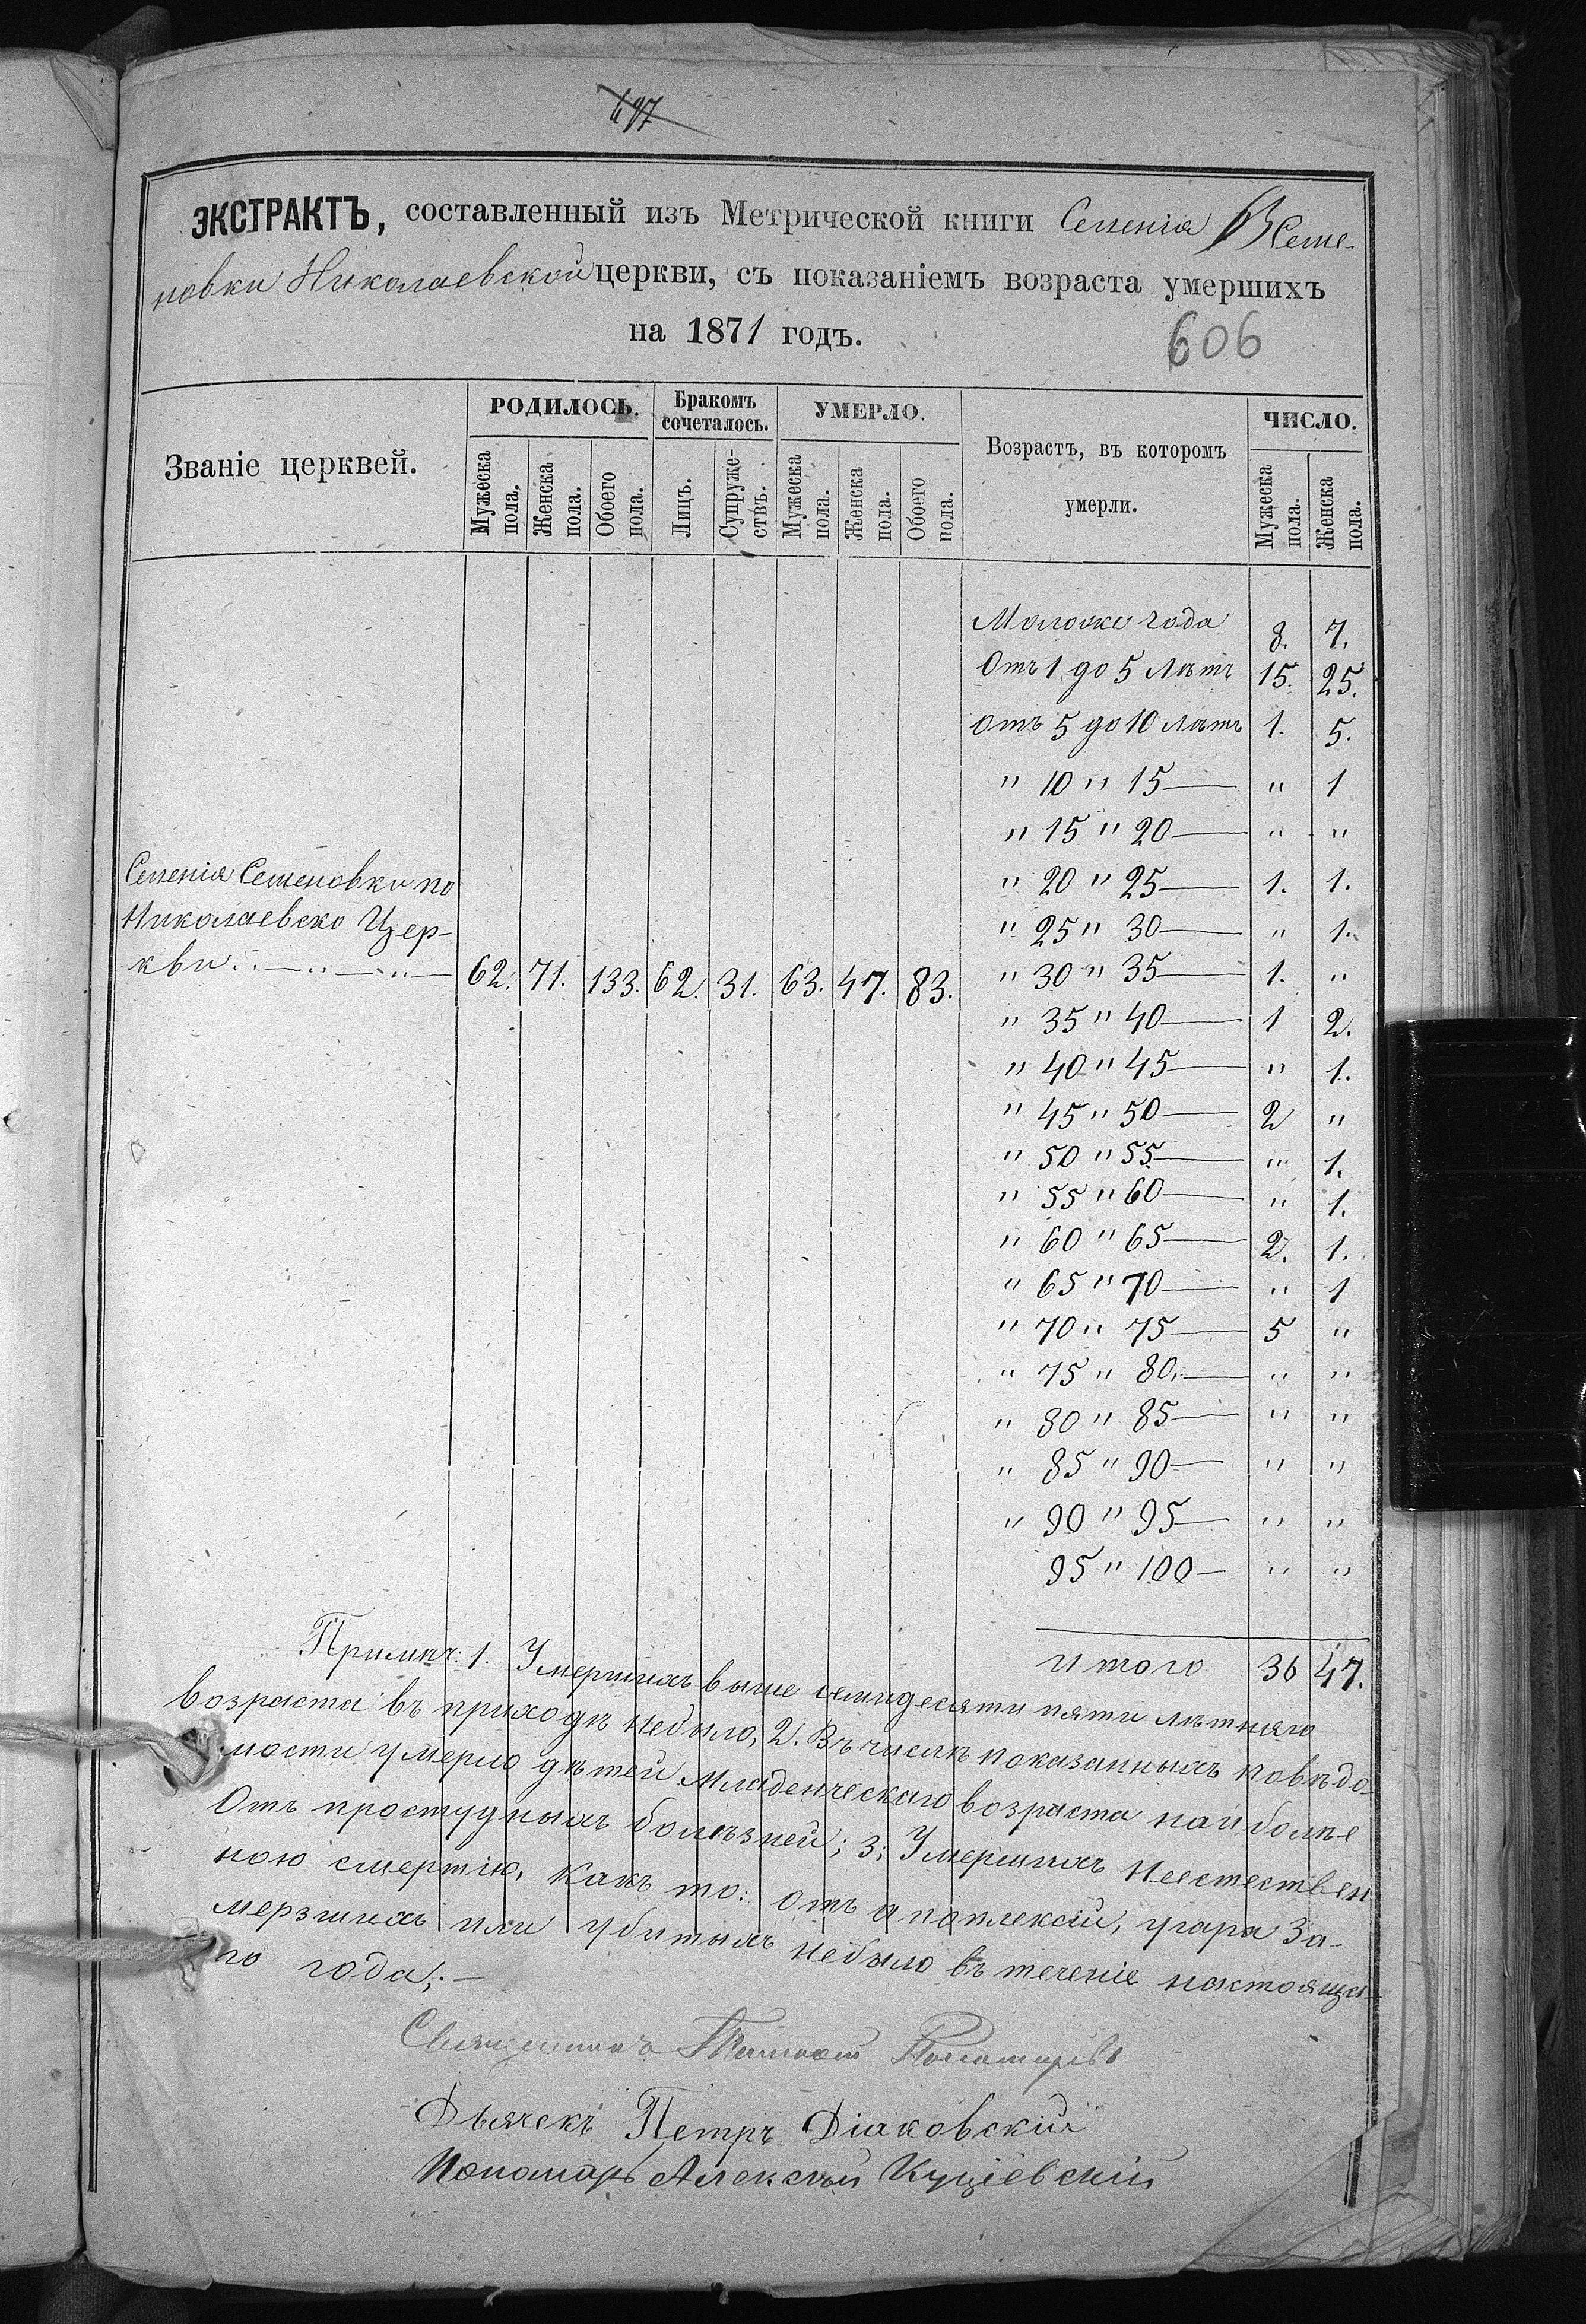 497
ЭКСТРАКТЪ, составленный изъ Метрической книги Селенія Семе-
новки Николаевской церкви, съ показаніемъ возраста умершихъ
на 1871 годъ.
606
Званіе церквей.
РОДИЛОСЬ.
Бракомъ сочеталось.
УМЕРЛО.
Возрастъ, въ которомъ умерли.
ЧИСЛО.
Мужеска пола.
Женска пола.
Обоего пола.
Лицъ.
Супруже-ствъ.
Мужеска пола.
Женска пола.
Обоего пола.
Мужеска пола.
Женска пола.
Моложе года 8. 7.
Отъ 1 до 5 лѣтъ 15. 25.
Отъ 5 до 10 лѣтъ 1. 5.
" 10 " 15 — " 1
" 15 " 20 — " "
" 20 " 25 — 1. 1.
" 25 " 30 — " 1.
" 30 " 35 — 1. "
" 35 " 40 — 1 2.
" 40 " 45 — " 1.
" 45 " 50 — 2 "
" 50 " 55 — " 1.
" 55 " 60 — " 1.
" 60 " 65 — 2. 1.
" 65 " 70 — " 1
" 70 " 75 — 5 "
" 75 " 80. — " "
" 80 " 85 — " "
" 85 " 90 — " "
" 90 " 95 — " "
95 " 100 — " "
Итого 36 47.
Селенія Семеновки по
Николаевско Цер-
кви 62. 71. 133. 62. 31. 63. 47. 83.
Примѣч: 1. Умершихъ выше семидесяти пяти лѣтняго
возраста въ приходѣ небыло, 2. Въ числѣ показанныхъ повѣдо-
мости умерло дѣтей младенческаго возраста наиболѣе
Отъ простудныхъ болѣзней; 3; Умершихъ неестествен
ною смертію, какъ то: отъ апоплексіи, угара за-
мерзшихъ или убитыхъ небыло въ теченіе настояща-
го года;. —
Священникъ
Дьячекъ Петръ Діаковскій
Пономарь Алексѣй Кущіевскій